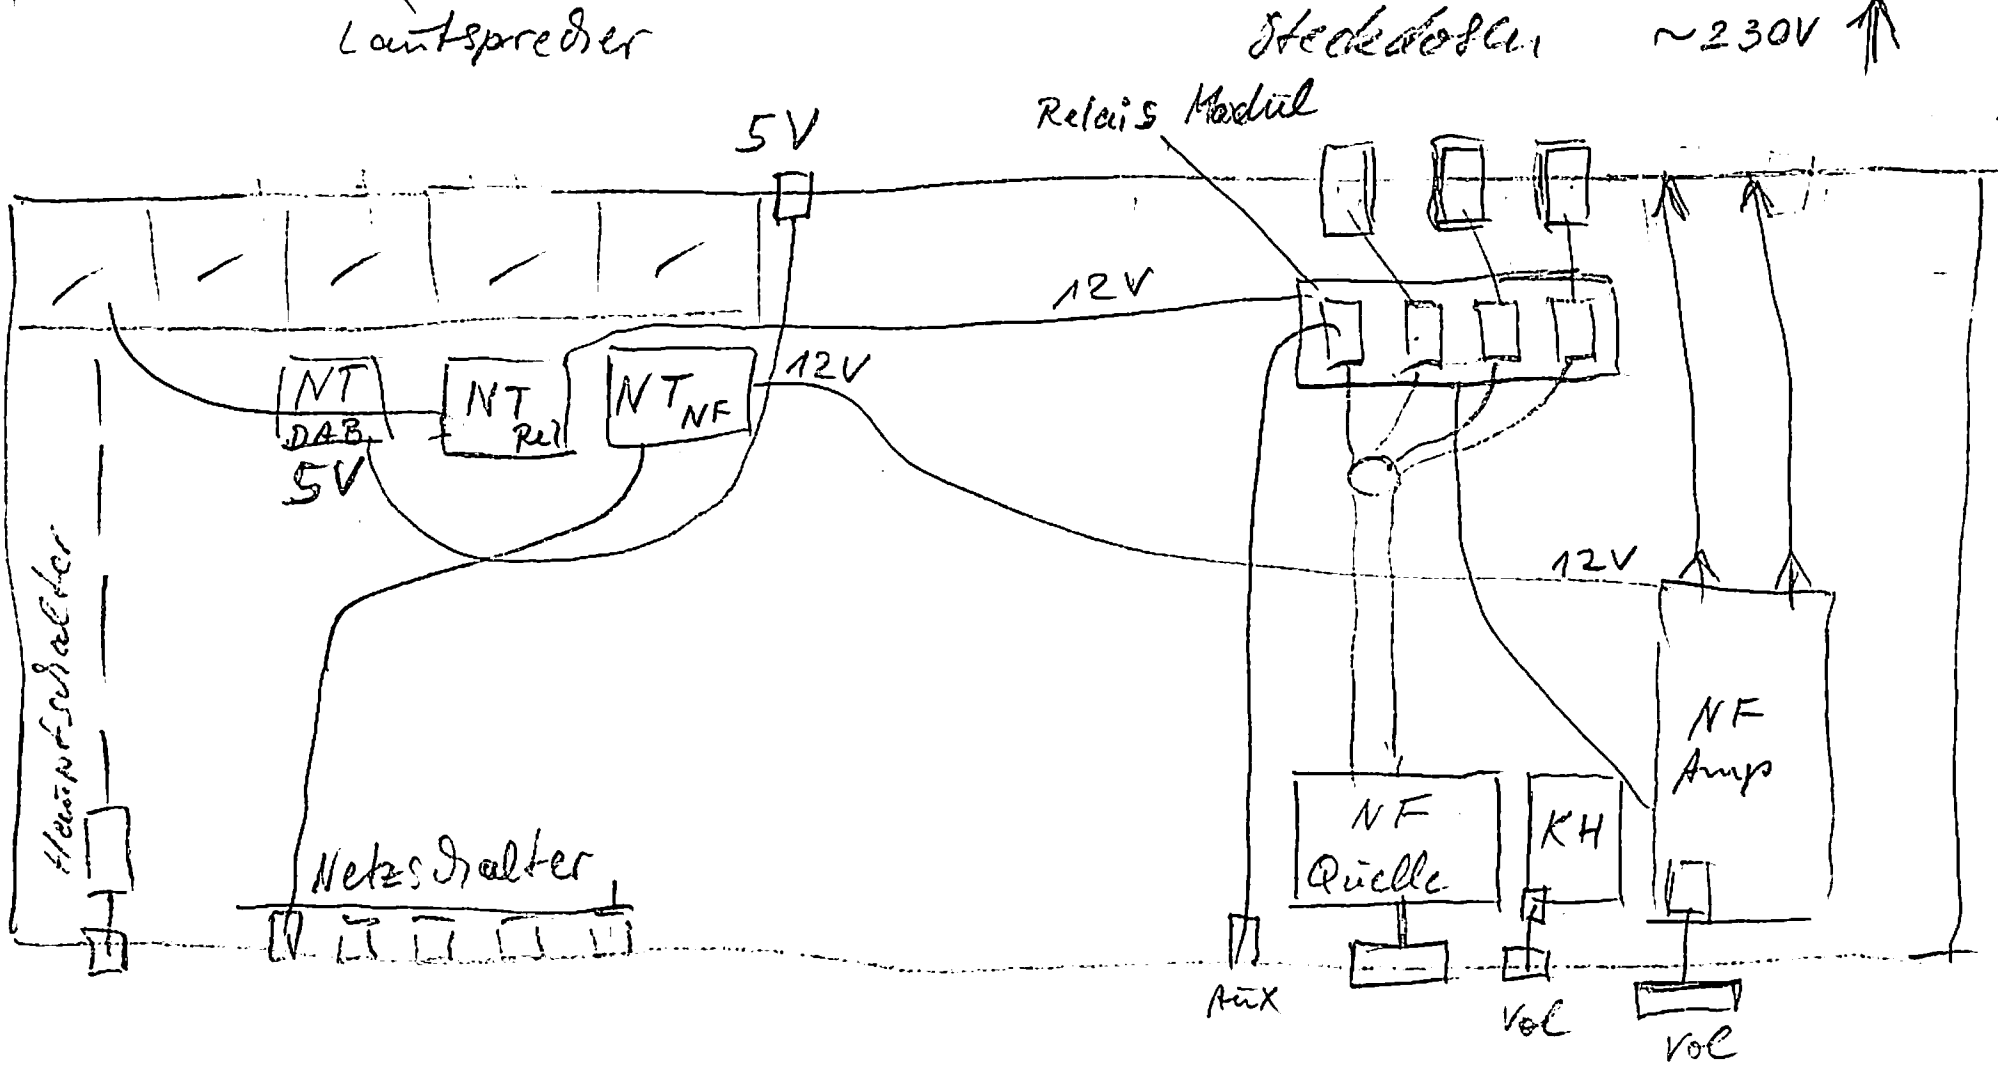 Lautsprecher
Steckdosen ~230V
Relais Modul
5V
12V
NT
DAB
5V
NT
Rel
NT NF
12V
12V
Hauptschalter
NF
Amp
NF
Quelle
KH
Netzschalter
Aux
Vol
Vol